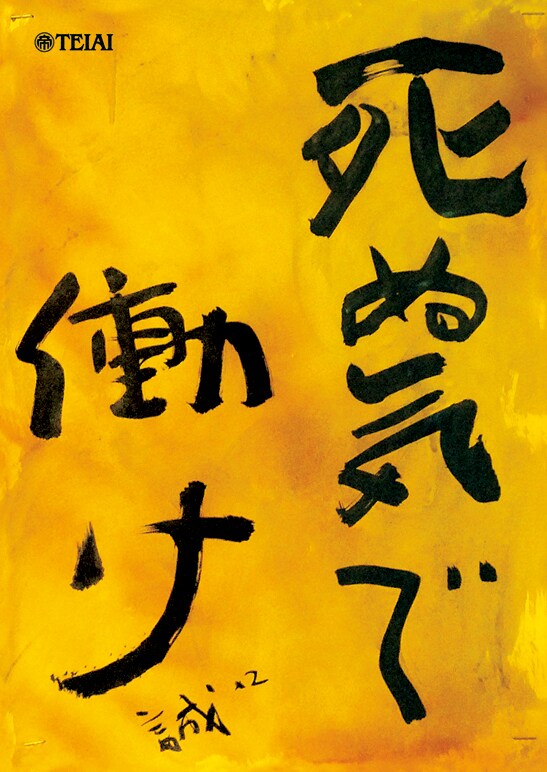 帝 TEIAI
死ぬ気で
働け
誠 x2